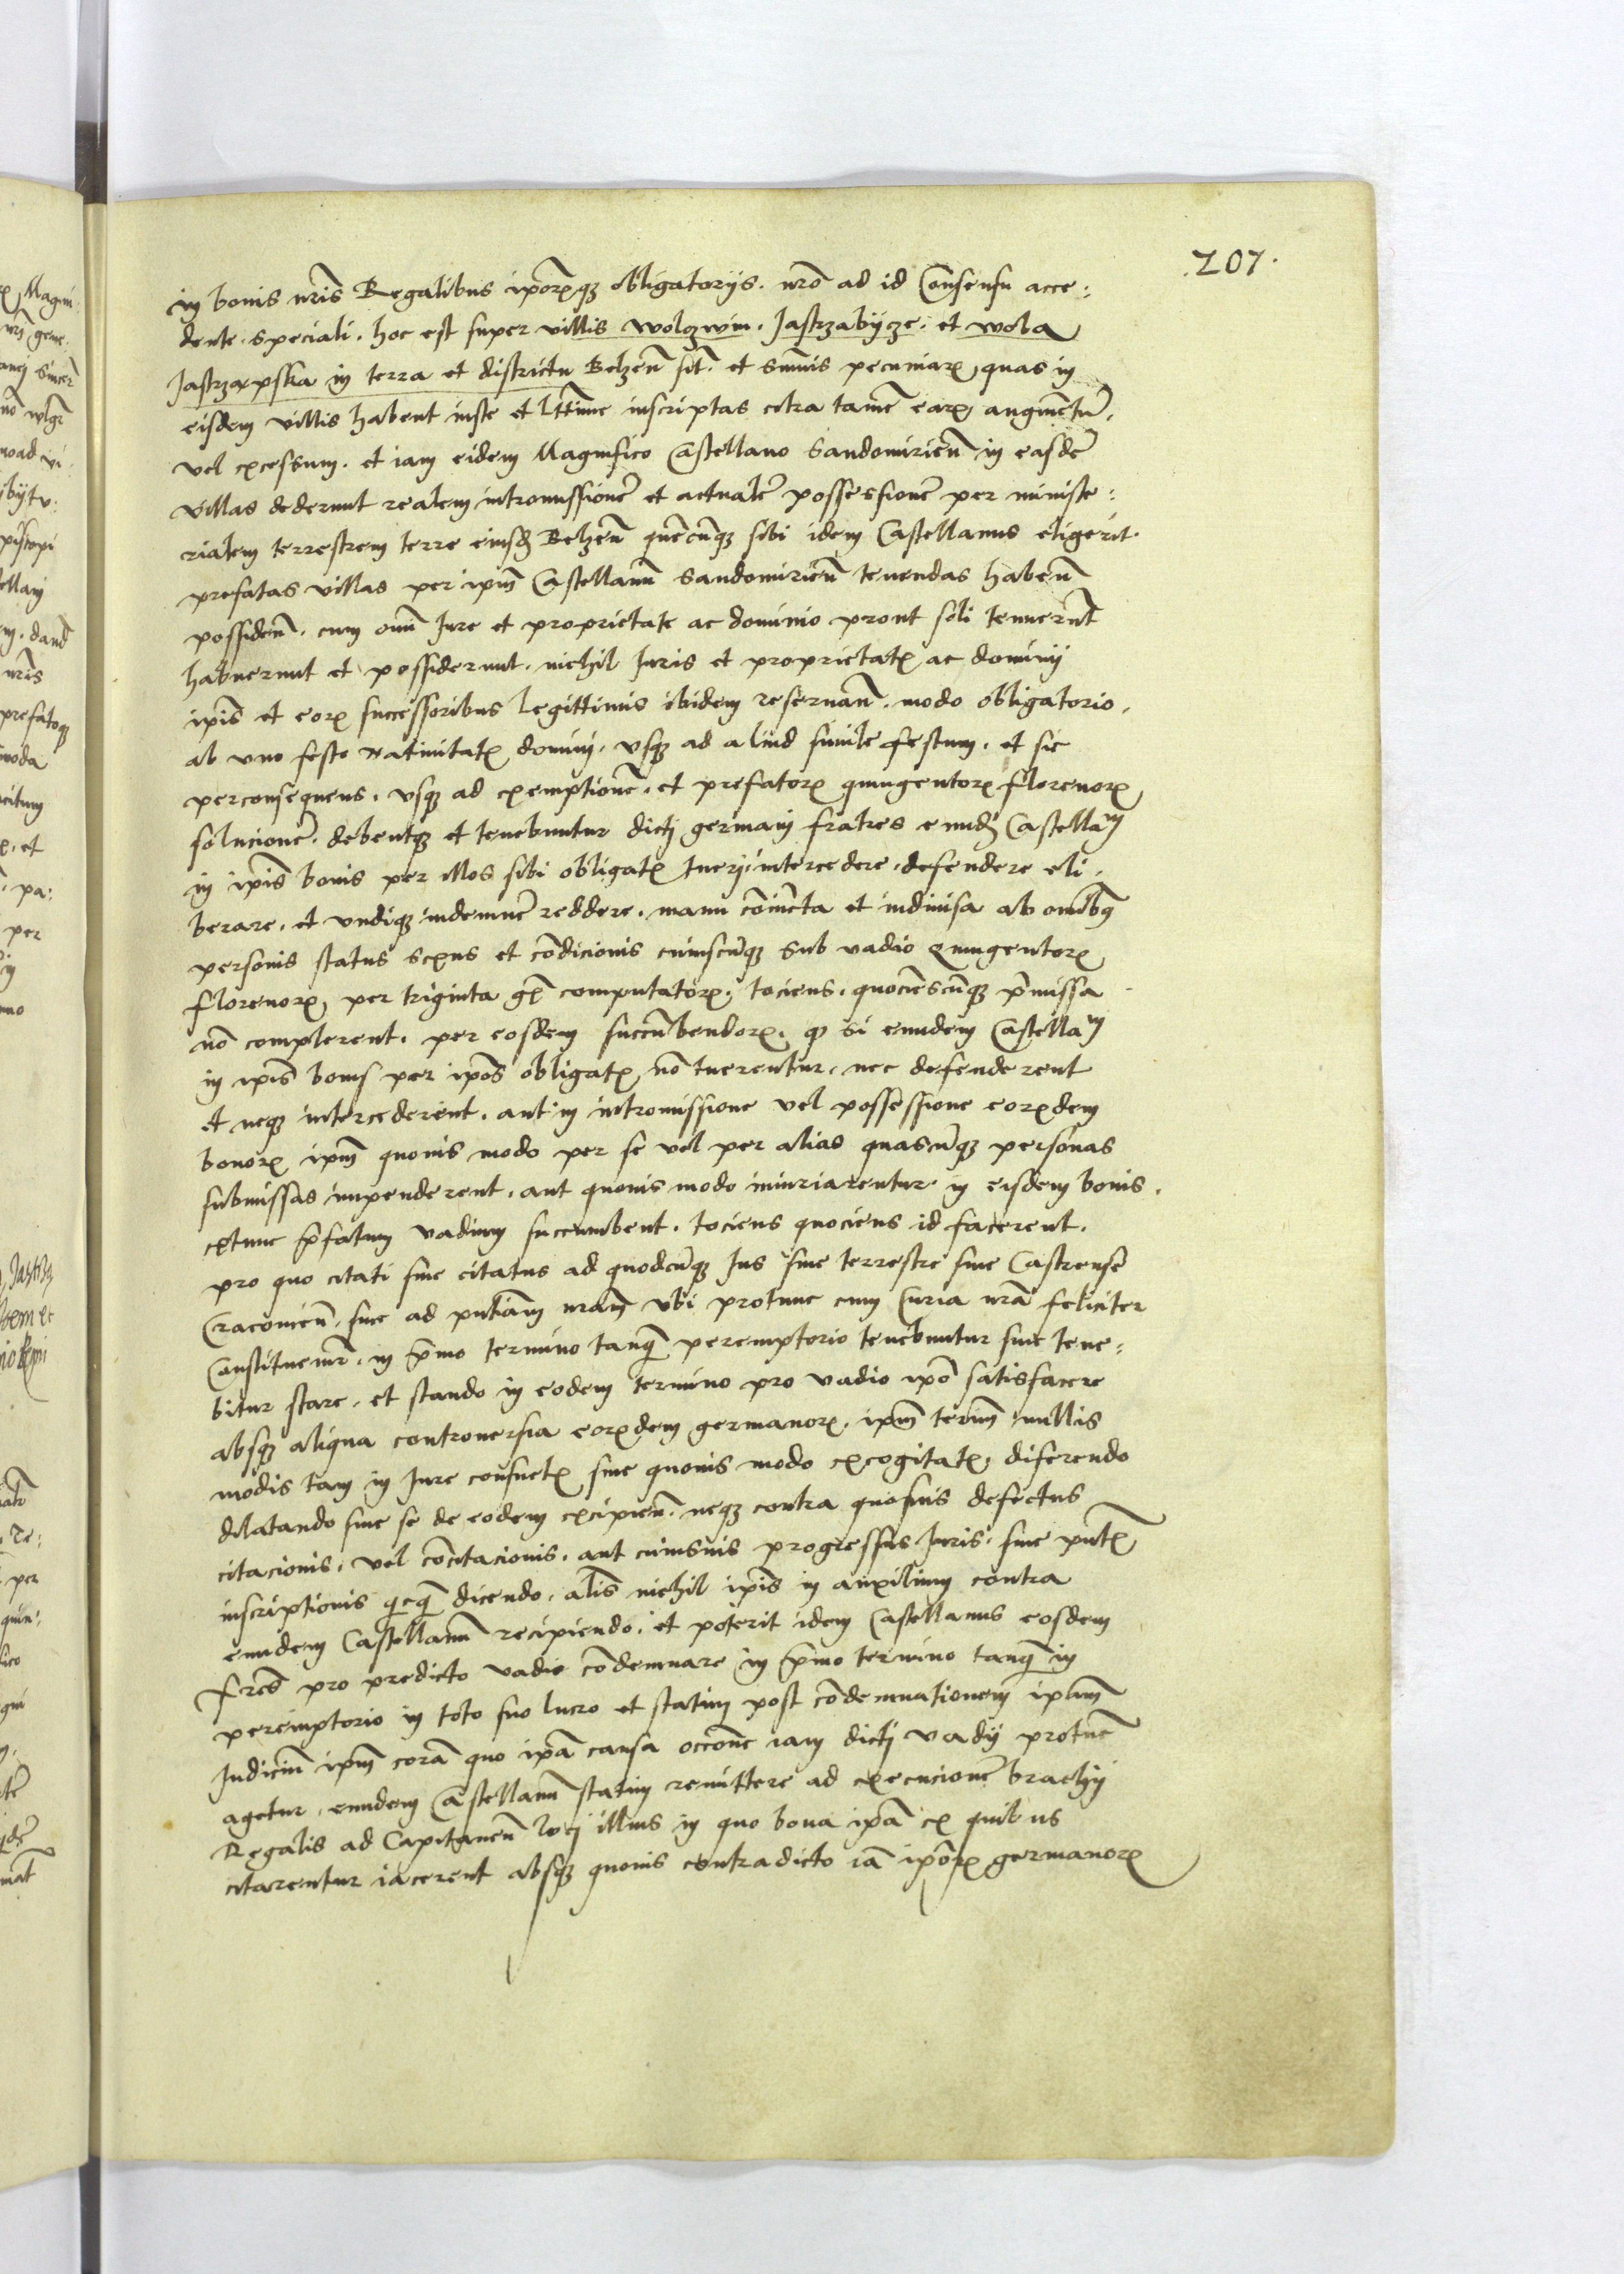 207.
in bonis nr̃is Regalibus ip̃orꝝqꝫ obligatorijs. nr̃o ad id Consensu acce:
dente. speciali. hoc est super villis wolczwin. Jastrzabycze. et wola
Jastrzaxpska in terra et districtu Belzen̄ sit̄. et sum̄is pecuniarꝝ quas in
eisdem villis habent iuste et lrttime inscriptas citra tamē earꝝ augmētu᷉.
vel excessum. et iam eidem Magnifico Castellano Sandomirien̄ in easdē
villas dederunt realem intromissionē et actualē possessionē per ministe:
rialem terrestrem terre eiusdꝫ Belzen̄ quēcūqꝫ sibi idem Castellanus eligerit.
prefatas villas per ip̄m Castellanū Sandomirien̄ tenendas haben̄
possiden̄. cum om̄i Iure et proprietate ac dominio prout soli tenuerūt
habuerunt et possiderunt. nichil Iuris et proprietatꝭ ac dominij
ip̄is et eorꝝ successoribus legittimis ibidem reseruan̄. modo obligatorio.
ab vno festo Natiuitatꝭ domini. vsqꝫ ad aliud simile festum. et sic
perconsequens. vsqꝫ ad exemptionē. et prefatorꝝ quingentorꝝ florenorꝝ
solucionē. debentqꝫ et tenebuntur dictj germani fratres eundꝫ Castellaᵐ
in ip̄is bonis per illos sibi obligatꝭ tuerj. intercedere. defendere eli.
berare. et vndiqꝫ indemnē reddere. manu cōiūcta et indiuisa ab omībꝫ
personis status sexus et cōdicionis cuiuscūqꝫ Sub vadio Quingentorꝝ
florenorꝝ per triginta gꝭ computatorꝝ. tociens. quociēscūqꝫ p̄missa
nō complerent. per eosdem succūbendorꝝ. qꝫ si eundem Castellaᵐ
in ip̄is bonis per ip̄os obligatꝭ nō tuerentur. nec defenderent
et neqꝫ intercederent. aut in intromissione vel possessione eorꝝdem
bonorꝝ ip̄m quouis modo per se vel per alias quascūqꝫ personas
submissas impenderent. aut quouis modo iniuriarentur in eisdem bonis.
extunc p̄fatum vadium succumbent. tociens quociens id facerent.
pro quo citati siue citatus ad quodcūqꝫ Ius siue terrestre siue Castrense
Cracouien̄. siue ad pn̄tiam nr̄am vbi protunc cum Curia nr̄a feliciter
Constituemr̄. in p̄mo termino tanqꝫ peremptorio tenebuntur siue tene:
bitur stare. et stando in eodem termino pro vadio ip̄o satisfacere
absqꝫ aliqua controuersia eorꝝdem germanorꝝ. ip̄m termī nullis
modis tam in Iure consuetꝭ siue quouis modo excogitatꝭ diferendo
dilatando siue se de eodem excipien̄. neqꝫ contra quosuis defectus
citacionis. vel cōcitacionis. aut cuiusuis progressus Iuris. siue pn̄tꝭ
inscriptionis qicqꝫ dicendo. al̄s nichil ip̄is in auxilium contra
eundem Castellanū recipiendo. et poterit idem Castellanus eosdem
fr̄es pro predicto vadio cōdemnare in p̄mo termino tanqꝫ in
peremptorio in toto suo lucro et statim post cōdemnationem ip̄am
Iudiciū ip̄m corā quo ip̄a causa occōne iam dictj vadij protūc
agetur. eundem Castellanū statim remittere ad execucionē brachij
Regalis ad Capitaneū locj illius in quo bona ip̄a ex quibus
citarentur iacerent absqꝫ quouis contradicto iā ip̄orꝝ germanorꝝ